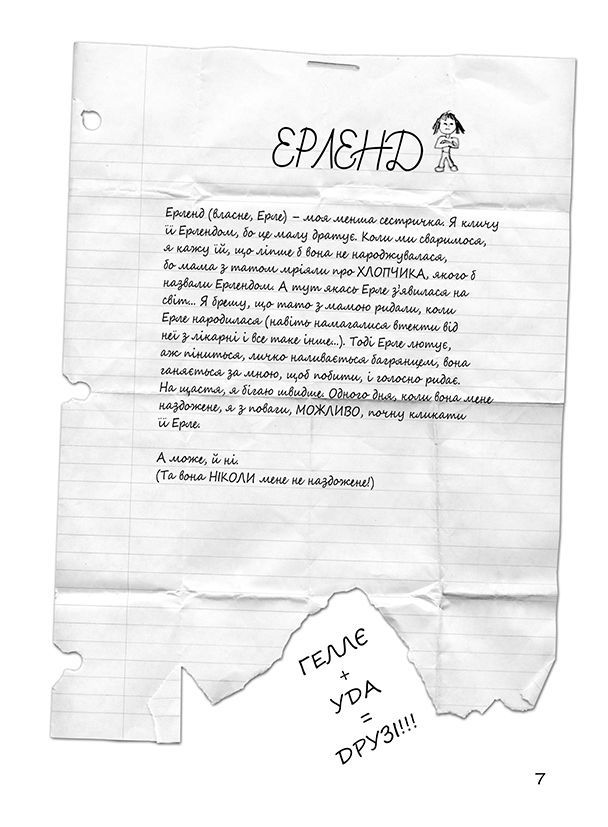 ЕРЛЕНД
Ерленд (власне, Ерле) – моя менша сестричка. Я кличу
її Ерлендом, бо це малу дратує. Коли ми сваримося,
я кажу їй, що ліпше б вона не народжувалася,
бо мама з татом мріяли про ХЛОПЧИКА, якого б
назвали Ерлендом. А тут якась Ерле з'явилася на
світ... Я брешу, що тато з мамою ридали, коли
Ерле народилася (навіть намагалися втекти від
неї з лікарні і все таке інше...). Тоді Ерле лютує,
аж піниться, личко наливається багрянцем, вона
ганяється за мною, щоб побити, і голосно ридає.
На щастя, я бігаю швидше. Одного дня, коли вона мене
наздожене, я з поваги, МОЖЛИВО, почну кликати
її Ерле.
А може, й ні.
(Та вона НІКОЛИ мене не наздожене!)
ГЕЛЛЄ
+
УДА
=
ДРУЗІ!!!
7